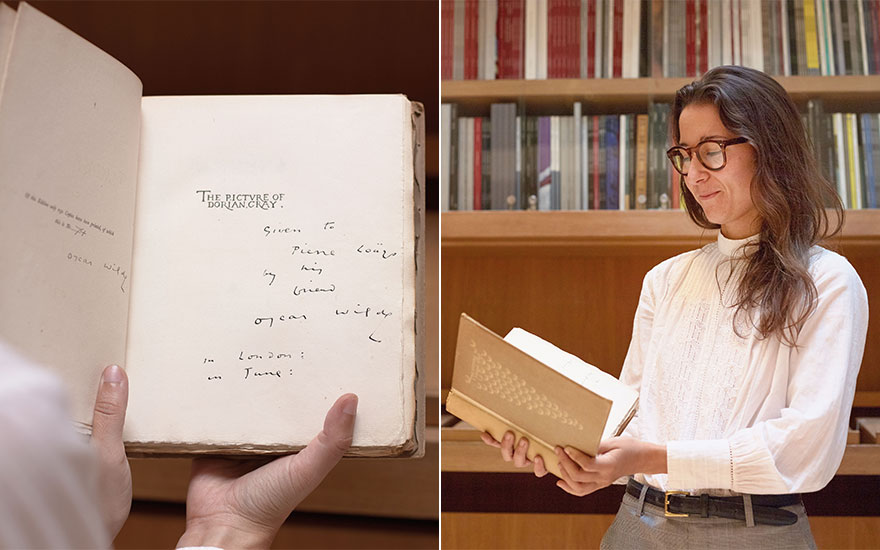 Of this Edition only 250 Copies have been printed, of which
this is
Oscar Wilde
THE PICTVRE OF
DORIAN GRAY.
Given to
Pierre Louÿs
by his
friend
Oscar Wilde
in London:
in June: